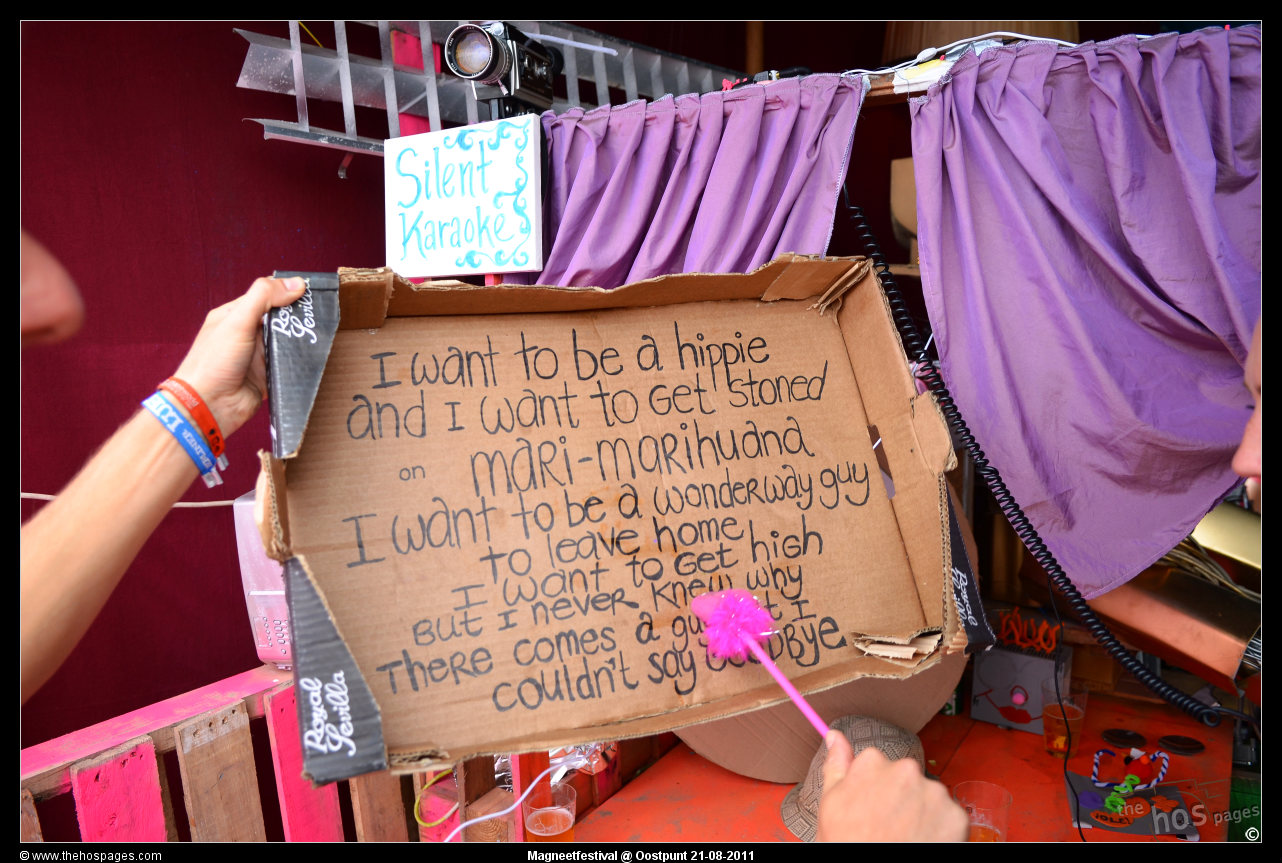 Silent
Karaoke
Royal
Sevilla
I want to be a hippie
and I want to Get stoned
on mari-marihuana
I want to be a wonderway guy
to leave home
I want to Get high
But I never knew why
There comes a guy I
couldn't say GoodBye
Royal
Sevilla
Royal
the hos pages
©
© www.thehospages.com
Magneetfestival @ Oostpunt 21-08-2011